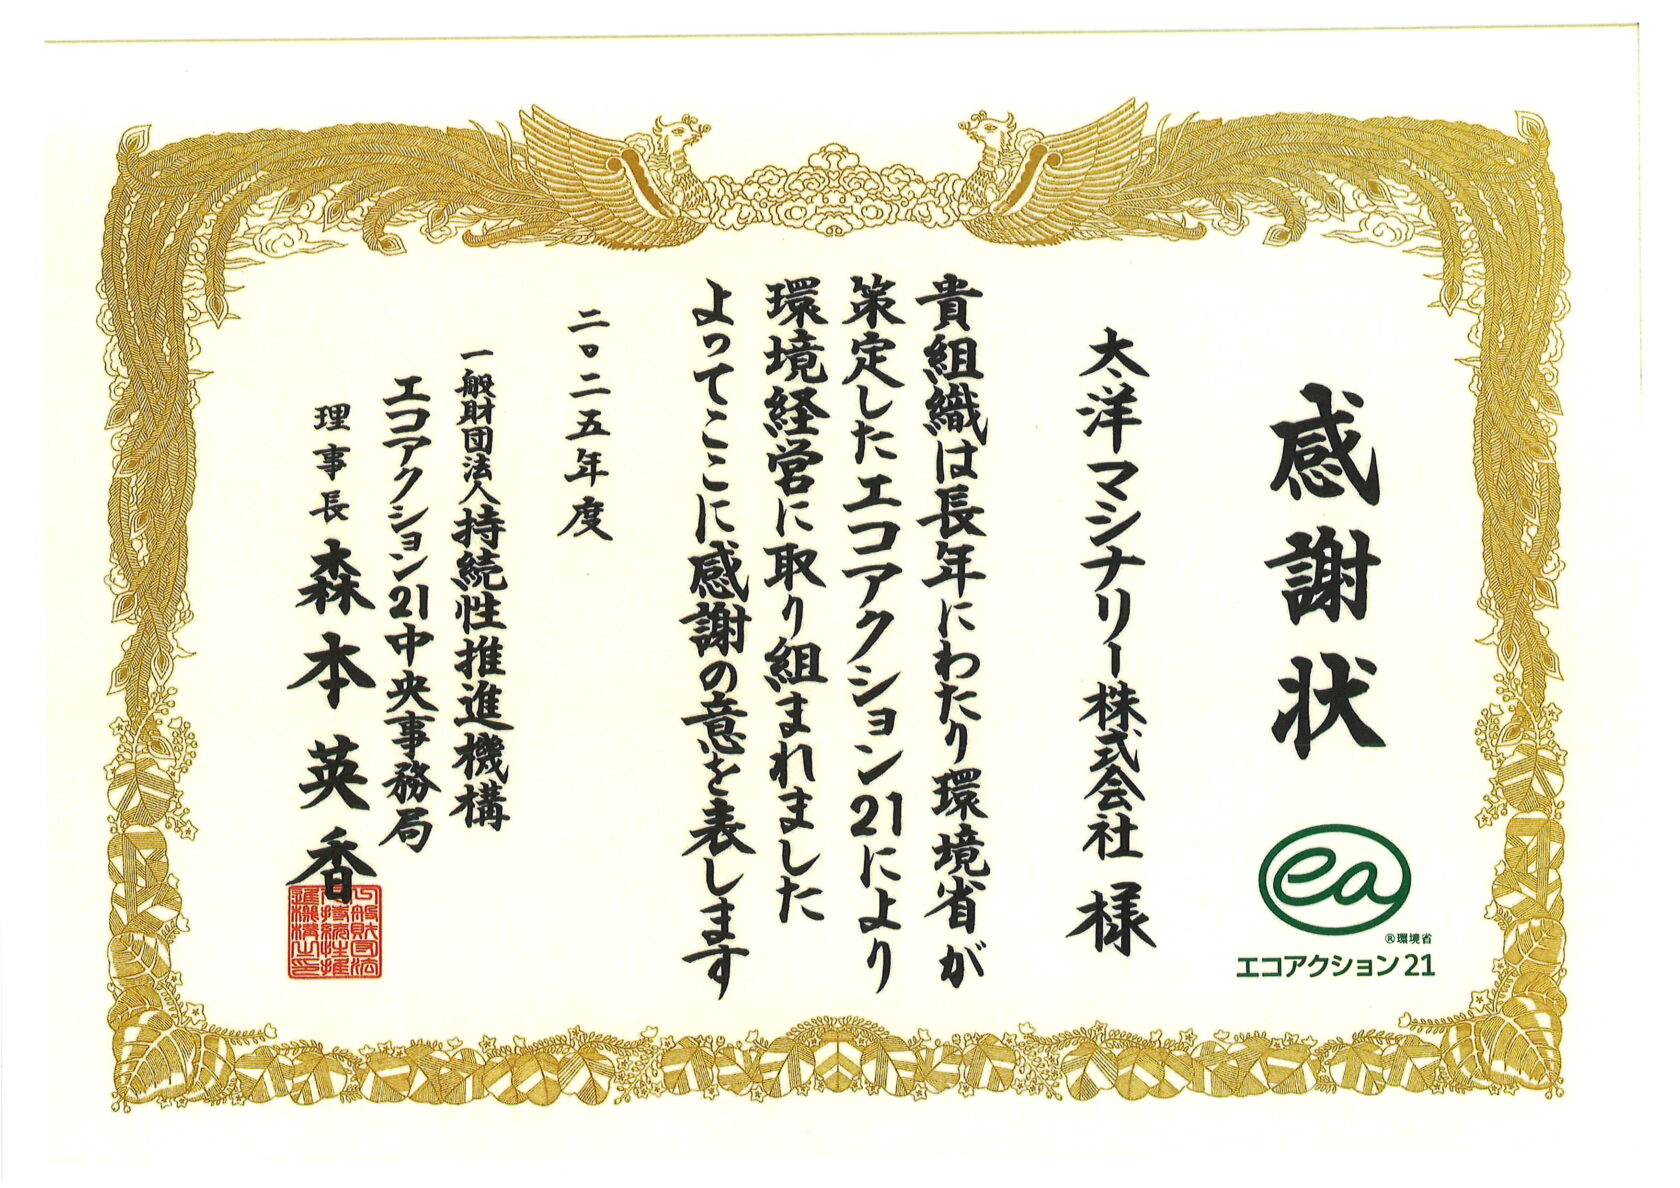 感謝状
ea
®環境省
エコアクション21
太洋マシナリー株式会社 様
貴組織は長年にわたり環境省が
策定したエコアクション21により
環境経営に取り組まれました
よってここに感謝の意を表します
二〇二五年度
一般財団法人持続性推進機構
エコアクション21中央事務局
理事長 森本英香
一般財団法
人持続性推
進機構之印